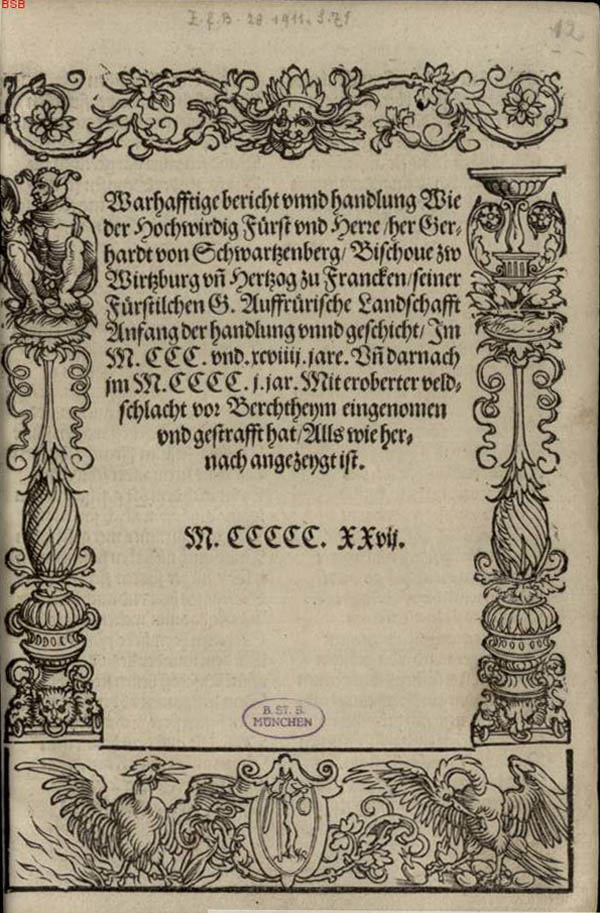 BSB
Z. f. B. 28 1911. S. 71
12
Warhafftige bericht vnnd handlung Wie
der Hochwirdig Fürst vnd Herre /her Ger⸗
hardt von Schwartzenberg/ Bischoue zw
Wirtzburg vñ Hertzog zu Francken/seiner
Fürstilchen G. Auffrürische Landschafft
Anfang der handlung vnnd geschicht/ Im
M. CCC. vnd. xcviiij. jare. Vñ darnach
jm M. CCCC. j. jar. Mit eroberter veld⸗
schlacht vor Berchtheym eingenomen
vnd gestrafft hat/Alls wie her⸗
nach angezeygt ist.
M. CCCCC. XXvij.
B. ST. B.
MÜNCHEN